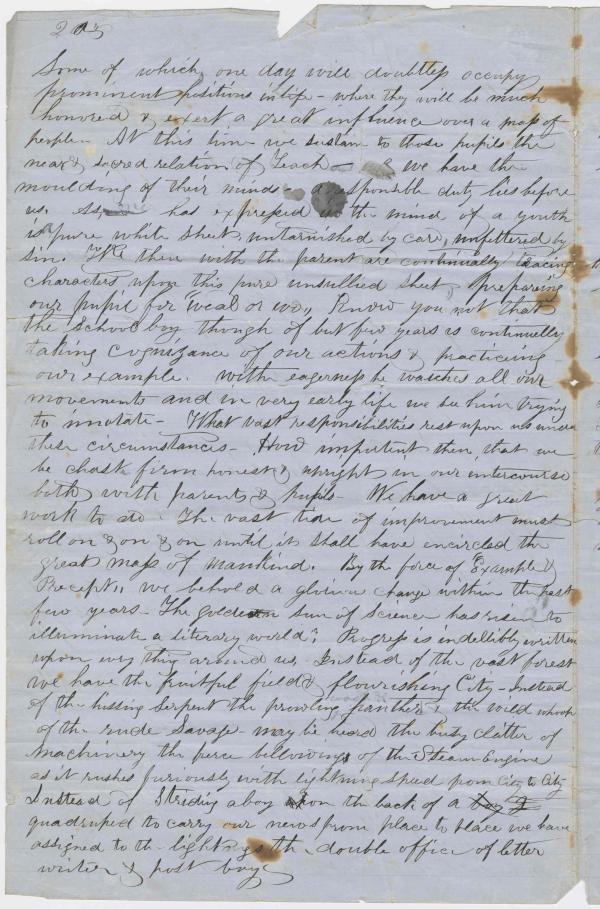 Some of which, one day will doubtless occupy
prominent positions in life - where they will be much
honored & exert a great influence over a mass of
people - At this time we sustain to those pupils the
near & sacred relation of Teach & we have the
moulding of their minds - a responsible duty lies before
us. As has expressed it the mind of a youth
is a pure white sheet, untarnished by care, unfettered by
sin. We then with the parent are continually tracing
characters upon this pure unsullied sheet, & prepareing
our pupil for weal or wo, Know you not that
the school boy though of but few years is continually
taking cognizance of our actions & practiceing
our example. with eagerness he watches all our
movements and in very early life we see him trying
to imotate - What vast responsibilities rest upon us under
these circumstances - How important then, that we
be chast firm honest & upright in our intercourse
both with parents & pupils - We have a great
work to do The vast tide of improvement must
roll on & on & on until it shall have encircled the
great mass of mankind. By the force of Example &
Precept, we behold a glorious change within the past
few years - The golden sun of science has risen to
illuminate a literary world; Progress is indellibly written
upon every thing around us Instead of the vast forest
we have the fruitful field & flourishing City - Instead
of the hissing serpent the prowling panther & the wild whoop
of the rude Savage - may be heard the busy clatter of
Machinery the fierce bellowings of the Steam Engine
as it rushes furiously with lightning speed from City to City
Instead of Striding a boy upon the back of a
quadruped to carry our news from place to place we have
assigned to the lightnings the double office of letter
writer & post boy